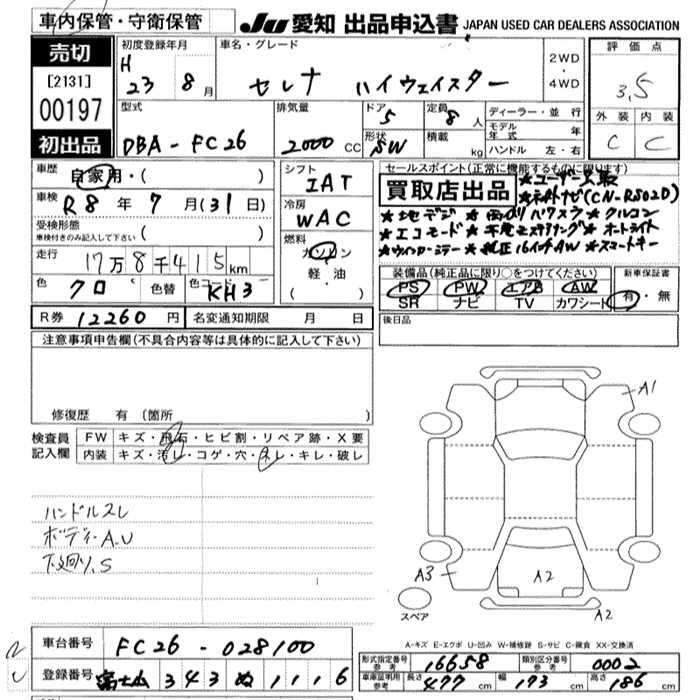 車内保管・守衛保管
JU 愛知 出品申込書 JAPAN USED CAR DEALERS ASSOCIATION
売切
[2131]
00197
初出品
初度登録年月
H 23 8月
車名・グレード
セレナ ハイウェイスター
2WD・4WD
評価点
3.5
外装 内装
C C
型式
DBA-FC26
排気量
2000 CC
ドア
5
形状
SW
定員
8人
積載
kg
ディーラー・並行
モデル年式 年
ハンドル 左・右
車歴
自家用・( )
車検
R8年 7月(31日)
受検形態
車検付きのみ記入して下さい ( )
走行
17万8千415km
色
クロ
色替
色コード
KH3
シフト
IAT
冷房
WAC
燃料
ガソリン
軽油
( ・ )
セールスポイント(正常に機能するものに限り)
買取店出品
★ユーザー買取
★ナビ(CN-RS02D)
★地デジ ★両側パワスラ ★クルコン
★エコモード ★オートライト
★ウィンカーミラー ★純正16インチAW ★スマートキー
装備品(純正品に限り○をつけてください)
PS PW エアB AW
SR ナビ TV カワシート
新車保証書
有・無
R券 12260円 名変通知期限 月 日
後日品
注意事項申告欄(不具合内容等は具体的に記入して下さい)
修復歴 有(箇所 )
検査員記入欄
FW キズ・飛石・ヒビ割・リペア跡・X要
内装 キズ・汚レ・コゲ・穴・スレ・キレ・破レ
ハンドルスレ
ボディーA.U
下廻りS
A1
A3
A2
A2
スペア
A-キズ E-エクボ U-凹み W-補修跡 S-サビ C-腐食 XX-交換済
車台番号 FC26-028100
登録番号 富士山 343 ぬ 1116
形式指定番号 参考 16658 類別区分番号 参考 0002
車庫証明用 参考 長さ 477cm 幅 173cm 高さ 186cm